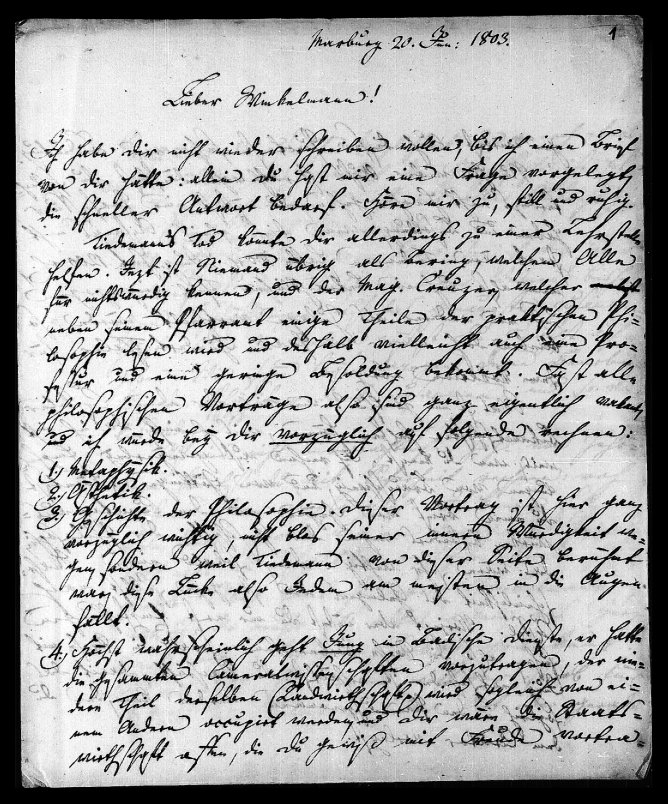 1
Marburg 20. Jun: 1803.
Lieber Winkelmann!
Ich habe dir nicht wieder schreiben wollen, bis ich einen Brief
von dir hätte: allein du hast mir eine Frage vorgelegt,
die schneller Antwort bedarf. Höre mir zu, still und ruhig.
Tiedemanns Tod könnte dir allerdings zu einer Lehrstelle
helfen. Jezt ist Niemand übrig als Bering, welchen Alle
für nichtswürdig kennen, und der Mag. Creuzer, welcher
neben seinem Pfarramt einige Theile der praktischen Phi-
losophie lesen wird und deshalb vielleicht auch eine Pro-
fessur und eine geringe Besoldung bekömmt. Fast alle
philosophischen Vorträge also sind ganz eigentlich vakant,
und ich würde bey dir vorzüglich auf folgende rechnen:
1.) Metaphysik.
2.) Ästhetik.
3.) Geschichte der Philosophie. Dieser Vortrag ist hier ganz
vorzüglich wichtig, nicht blos seiner innern Würdigkeit we-
gen, sondern weil Tiedemann von dieser Seite berühmt
war, diese Lücke also Jedem am meisten in die Augen
fällt.
4.) Höchst wahrscheinlich geht Jung in Badische Dienste, er hatte
die gesammten Cameralwissenschaften vorzutragen, der nie-
dere Theil derselben (Landwirthschaft) wird sogleich von ei-
nem Andern occupirt werden, und dir wäre die Staats-
wirthschaft offen, die du gewiß mit Freude vortra-